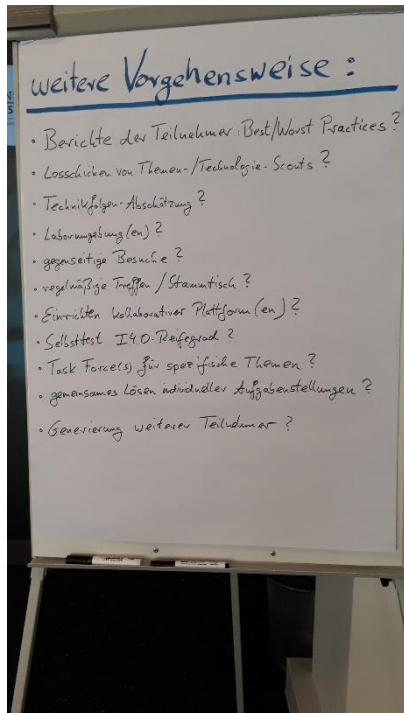 weitere Vorgehensweise :
• Berichte der Teilnehmer: Best/Worst Practices ?
• Losschicken von Themen-/Technologie-Scouts ?
• Technikfolgen-Abschätzung ?
• Laborumgebung(en) ?
• gegenseitige Besuche ?
• regelmäßige Treffen / Stammtisch ?
• Einrichten kollaborativer Plattform(en) ?
• Selbsttest I4.0-Reifegrad ?
• Task Force(s) für spezifische Themen ?
• gemeinsames Lösen individueller Aufgabenstellungen ?
• Generierung weiterer Teilnehmer ?